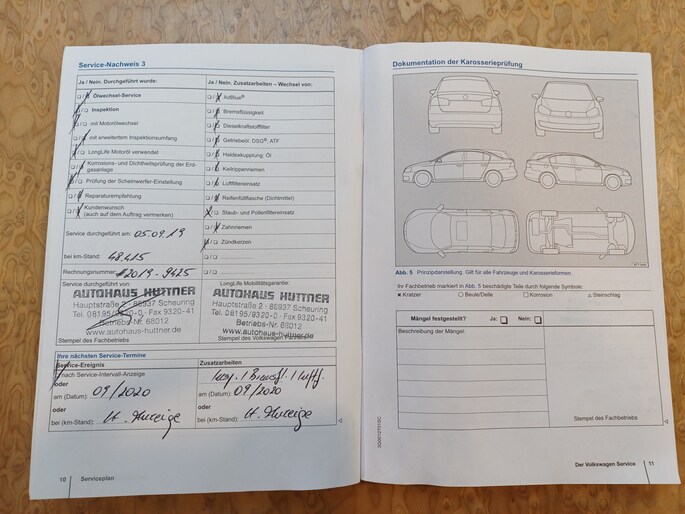 Service-Nachweis 3
Ja / Nein. Durchgeführt wurde:
Ölwechsel-Service
Inspektion
mit Motorölwechsel
mit erweitertem Inspektionsumfang
LongLife Motoröl verwendet
Korrosions- und Dichtheitsprüfung der Erd-
gasanlage
Prüfung der Scheinwerfer-Einstellung
Reparaturempfehlung
Kundenwunsch
(auch auf dem Auftrag vermerken)
Service durchgeführt am: 05.09.19
bei km-Stand: 48.415
Rechnungsnummer: 2019-9425
Service durchgeführt von:
AUTOHAUS HUTTNER
Hauptstraße 2 · 86937 Scheuring
Tel. 08195/9320-0 · Fax 9320-41
Betriebs-Nr. 63012
www.autohaus-huttner.de
Stempel des Fachbetriebs
Ja / Nein. Zusatzarbeiten – Wechsel von:
AdBlue®
Bremsflüssigkeit
Dieselkraftstofffilter
Getriebeöl: DSG®, ATF
Haldexkupplung: Öl
Keilrippenriemen
Luftfiltereinsatz
Reifenfüllflasche (Dichtmittel)
Staub- und Pollenfiltereinsatz
Zahnriemen
Zündkerzen
LongLife Mobilitätsgarantie:
AUTOHAUS HUTTNER
Hauptstraße 2 · 86937 Scheuring
Tel. 08195/9320-0 · Fax 9320-41
Betriebs-Nr. 63012
www.autohaus-huttner.de
Stempel des Volkswagen Partners
Ihre nächsten Service-Termine
Service-Ereignis
nach Service-Intervall-Anzeige
oder
am (Datum): 09/2020
oder
bei (km-Stand): lt. Anzeige
Zusatzarbeiten
am (Datum): 09/2020
oder
bei (km-Stand): lt. Anzeige
10 Serviceplan
Dokumentation der Karosserieprüfung
Abb. 5 Prinzipdarstellung. Gilt für alle Fahrzeuge und Karosserieformen.
Ihr Fachbetrieb markiert in Abb. 5 beschädigte Teile durch folgende Symbole:
× Kratzer ○ Beule/Delle □ Korrosion △ Steinschlag
Mängel festgestellt? Ja: Nein:
Beschreibung der Mängel:
Stempel des Fachbetriebs
Der Volkswagen Service 11